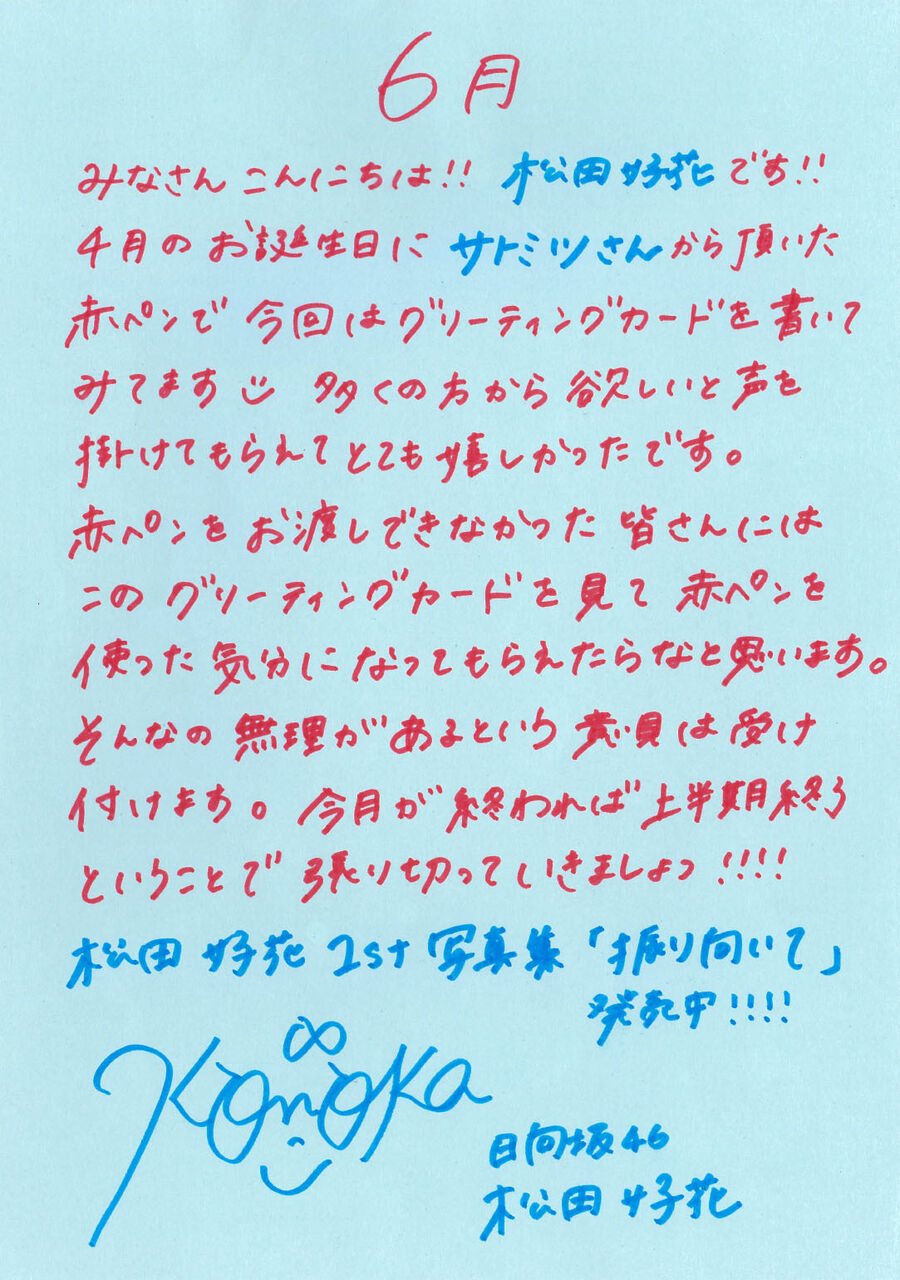 6月
みなさん こんにちは!! 松田好花です!!
4月のお誕生日に サトミツさんから頂いた
赤ペンで 今回はグリーティングカードを書いて
みてます 多くの方から欲しいと声を
掛けてもらえてとても嬉しかったです。
赤ペンをお渡しできなかった皆さんには
このグリーティングカードを見て 赤ペンを
使った気分になってもらえたらなと思います。
そんなの無理があるという意見は受け
付けます。今月が終われば上半期終了
ということで張り切っていきましょっ!!!!
松田好花 1st写真集「振り向いて」
発売中!!!!
Konoka
日向坂46
松田好花